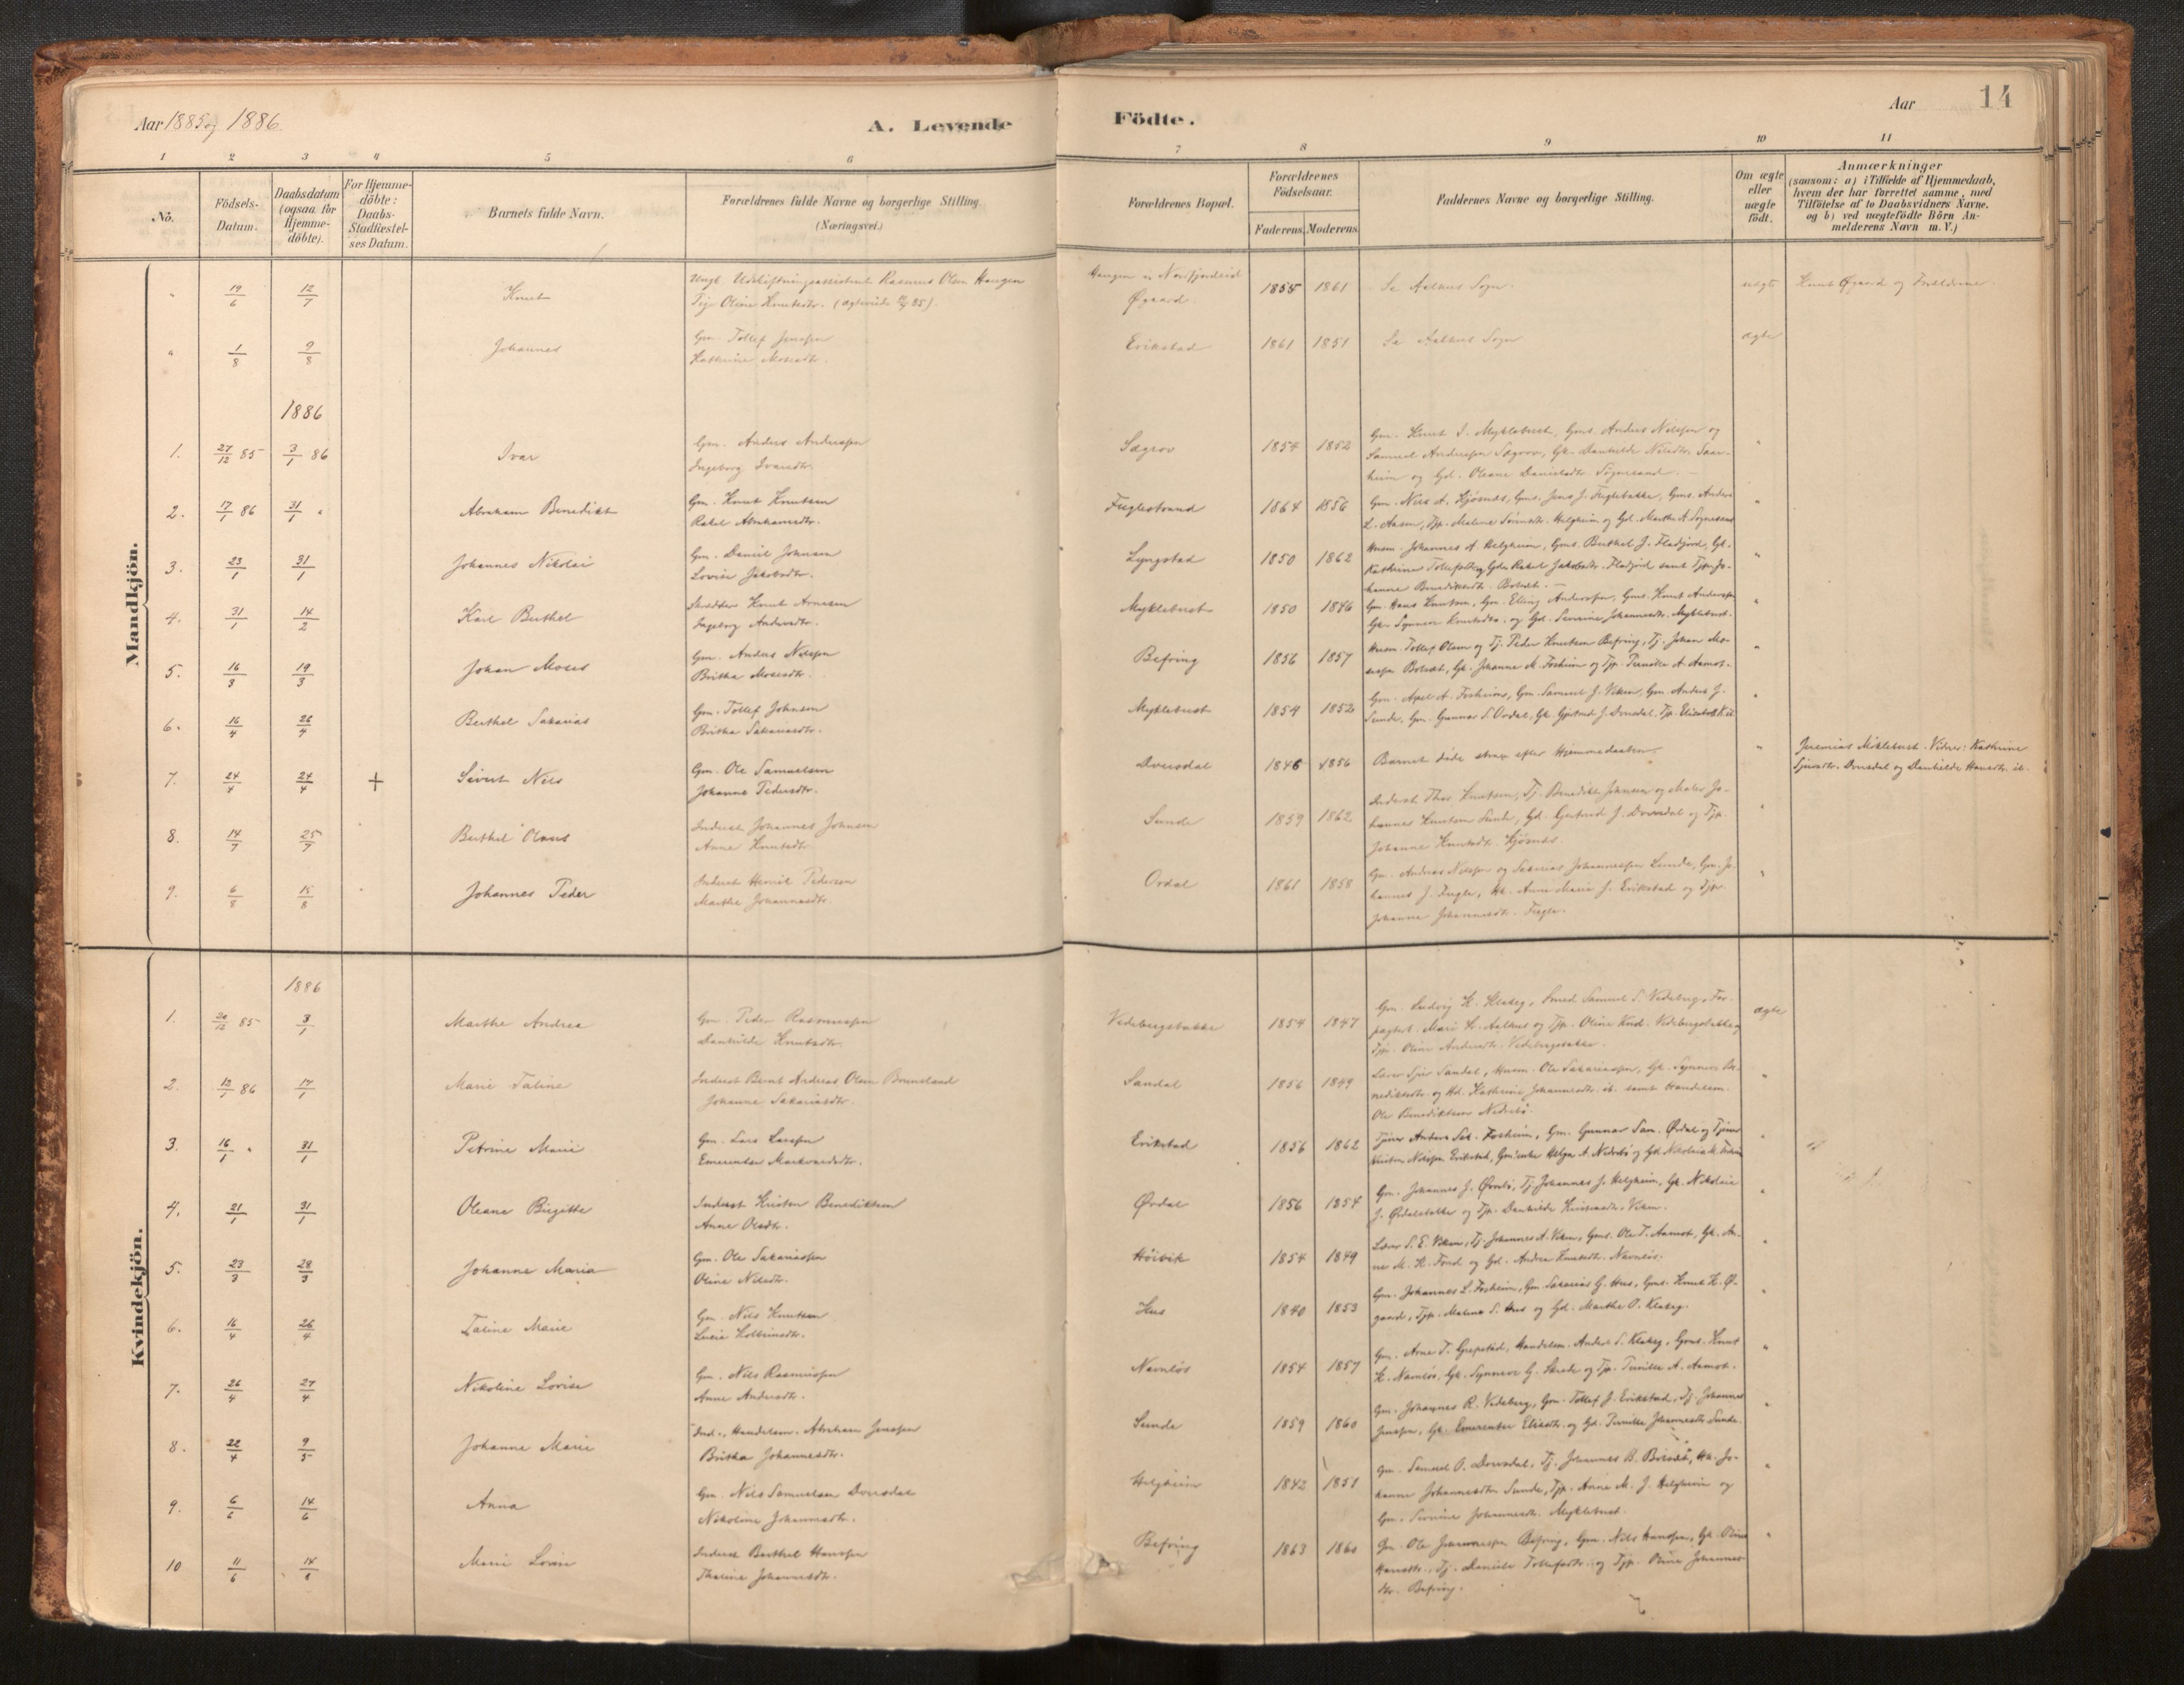 Aar 1885 og 1886.
A. Levende
Födte.
Aar
14
1 2 3 4 5 6 7 8 9 10 11
No.
Födsels-
Datum.
Daabsdatum
(ogsaa for
Hjemme-
döbte).
For Hjemme-
döbte:
Daabs-
Stadfæstel-
ses Datum.
Barnets fulde Navn.
Forældrenes fulde Navne og borgerlige Stilling.
(Næringsvei.)
Forældrenes Bopæl.
Forældrenes
Födselsaar.
Faderens. Moderens.
Faddernes Navne og borgerlige Stilling.
Om ægte
eller
uægte
födt.
Anmærkninger
(saasom: a) i Tilfælde af Hjemmedaab,
hvem der har forrettet samme, med
Tilföielse af to Daabsvidners Navne.
og b) ved uægtefödte Börn An-
melderens Navn m. V.)
Mandkjön.
" 19/6 12/7 Knut
Ungk. Udskiftningsassistent Rasmus Olsen Haugen
Pige Oline Knutsdtr.
Haugen i Nordfjordeid
Øgaard
1855 1861 Se Aalhus Sogn. uægte
Knut Øgaard og Forældrene.
" 1/8 9/8 Johannes
Gm. Tollef Jenssen
Kathrine Mosesdtr.
Erikstad 1861 1851 Se Aalhus Sogn ægte
1886
1. 27/12 85 3/1 86 Ivar
Gm. Anders Anderssen
Ingeborg Ivarsdtr.
Sægrov 1854 1852
Gm. Knut I. Myklebust, Gms. Anders Nilssen og
Samuel Anderssen Sægrov, Gk. Danhilde Nilsdtr. Saar-
heim og Gd. Oleane Danielsdtr. Sognesand.
2. 17/1 86 31/1 " Abraham Benedikt
Gm. Knut Knutsen
Rakel Abrahamsdtr.
Fuglestrand 1864 1856
Gm. Nils A. Kjøsnes, Gms. Jens J. Fuglebakke, Gms. Anders
L. Aasen, Tjp. Malene Simonsdtr. Helgheim og Gd. Marthe A. Sognesand
3. 23/1 31/1 Johannes Nikolai
Gm. Daniel Johnsen
Lovise Jakobsdtr.
Lyngstad 1850 1862
Husm. Johannes A. Helgheim, Gms. Berthel J. Fladjord, Gk.
Kathrine Tollefsdtr, Gdtr Rakel Jakobsdtr. Fladjord samt Tjp. Jo-
hanne Benediktsdtr. Bolsæt.
4. 31/1 14/2 Karl Berthel
Skrædder Knut Arnesen
Ingeborg Andersdtr.
Myklebust 1850 1846
Gm. Hans Knutsen, Gm. Elling Anderssen, Gms. Knut Anderssen
Gk. Synneve Knutsdtr. og Gd. Severine Johannesdtr. Myklebust.
5. 16/3 19/3 Johan Moses
Gm. Anders Nilssen
Britha Mosesdtr.
Befring 1856 1857
Husm. Tollef Olsen og Tj. Peder Knutsen Befring, Tj. Johan Mo-
sessen Bolsæt, Gk. Johanne M. Fosheim og Tjp. Pernille A. Aamot.
6. 16/4 26/4 Berthel Sakarias
Gm. Tollef Johnsen
Britha Sakariasdtr.
Myklebust 1854 1852
Gm. Axel A. Fosheim, Gm. Samuel J. Viken, Gm. Anders J.
Sunde, Gm. Gunnar S. Ordal, Gk. Gjertrud J. Dvergsdal, Tjp. Elisabeth
7. 24/4 24/4 + Sivert Nils
Gm. Ole Samuelsen
Johanne Pedersdtr.
Dvergsdal 1846 1856
Barnet døde strax efter Hjemmedaaben.
Jeremias Myklebust. Vidner: Kathrine
Sjursdtr. Dvergsdal og Danhilde Hansdtr. ib.
8. 14/7 25/7 Berthel Olaus
Inderst Johannes Johnsen
Anne Knutsdtr.
Sunde 1859 1862
Inderst Thor Knutsen, Tj. Benedikt Johnsen og Maler Jo-
hannes Knutsen Sunde, Gd. Gjertrud J. Dvergsdal og Tjp.
Johanne Knutsdtr. Kjøsnes.
9. 6/8 15/8 Johannes Peder
Inderst Henrik Pedersen
Marthe Johannesdtr.
Ordal 1861 1858
Gm. Andreas Nilssen og Sakarias Johannessen Sunde, Gm. Jo-
hannes J. Fugle, Hk. Anne Marie J. Erikstad og Tjp.
Johanne Johannesdtr. Fugle.
Kvindekjön.
1886
1. 30/12 85 3/1 Marthe Andrea
Gm. Peder Rasmussen
Danhilde Knutsdtr.
Vedebergsbakke 1854 1847
Gm. Ludvig K. Klakeg, Smed Samuel S. Vedeberg, For-
pagtersk. Mari L. Aalhus og Tjp. Oline Knd. Vedebergsbakke og
Tjp. Oline Andersdtr. Vedebergsbakke.
ægte
2. 13/1 86 17/1 Marie Taline
Inderst Bernt Andreas Olsen Brunsland
Johanne Sakariasdtr.
Sandal 1856 1849
Lærer Sjur Sandal, Husm. Ole Sakariassen, Gk. Synneve Be-
nediktsdtr. og Hd. Kathrine Johannesdtr. ib. samt Handelsm.
Ole Benediktsen Nedrebø.
3. 16/1 " 31/1 Petrine Marie
Gm. Lars Larssen
Emerentse Markvardsdtr.
Erikstad 1856 1862
Tjener Anders Sak. Fosheim, Gm. Gunnar Sam. Ørdal og Tjener
Kristen Nilssen Erikstad, Gm'enke Helga A. Nedrebø og Gd. Nikolaia
4. 21/1 31/1 Oleane Birgitte
Inderst Kristen Benediktsen
Anne Olsdtr.
Ørdal 1856 1854
Gm. Johannes J. Øvrebø, Tj. Johannes J. Helgheim, Gk. Nikolaia
J. Ørdalsbakke og Tjp. Danhilde Kristensdtr. Viken.
5. 23/3 28/3 Johanne Maria
Gm. Ole Sakariassen
Oline Nilsdtr.
Høivik 1854 1849
Lærer S. E. Viken, Tj. Johannes A. Viken, Gms. Ole T. Aamot, Gk. An-
ne M. K. Fond og Gd. Andrea Knutsdtr. Navnløs.
6. 16/4 26/4 Taline Marie
Gm. Nils Knutsen
Lucie Kolbeinsdtr.
Hus 1840 1853
Gm. Johannes L. Fosheim, Gm. Sakarias G. Hus, Gms. Knut K. Ø-
gaard, Tjp. Malene S. Hus og Gd. Marthe O. Klakeg.
7. 26/4 27/4 Nikoline Lovise
Gm. Nils Rasmussen
Anne Andersdtr.
Navnløs 1854 1857
Gm. Arne T. Grepstad, Handelsm. Anders S. Klakeg, Gms. Knut
K. Navnløs, Gk. Synneve G. Skrede og Tjp. Pernille A. Aamot.
8. 22/4 9/5 Johanne Marie
Ind., Handelsm. Abraham Jenssen
Britha Johannesdtr.
Sunde 1859 1860
Gm. Johannes R. Vedeberg, Gm. Tollef J. Erikstad, Tj. Johannes
Jenssen, Gk. Emerentse Eliasdtr. og Gd. Pernille Johannesdtr Sunde.
9. 6/6 14/6 Anna
Gm. Nils Samuelsen Dvergsdal
Nikoline Johannesdtr.
Helgheim 1842 1851
Gm. Samuel O. Dvergsdal, Tj. Johannes B. Bolsæt, Hk. Jo-
hanne Johannesdtr Sunde, Tjp. Anne M. J. Helgheim og
Gm. Severine Johannesdtr. Myklebust.
10 11/6 14/6 Marie Lovise
Inderst Berthel Hanssen
Thaline Johannesdtr.
Befring 1863 1860
Gm. Ole Johannessen Befring, Gm. Nils Hanssen, Gk. Oline
Hansdtr., Tj. Daniele Tollefsdtr. og Tjp. Oline Johannes-
dtr. Befring.